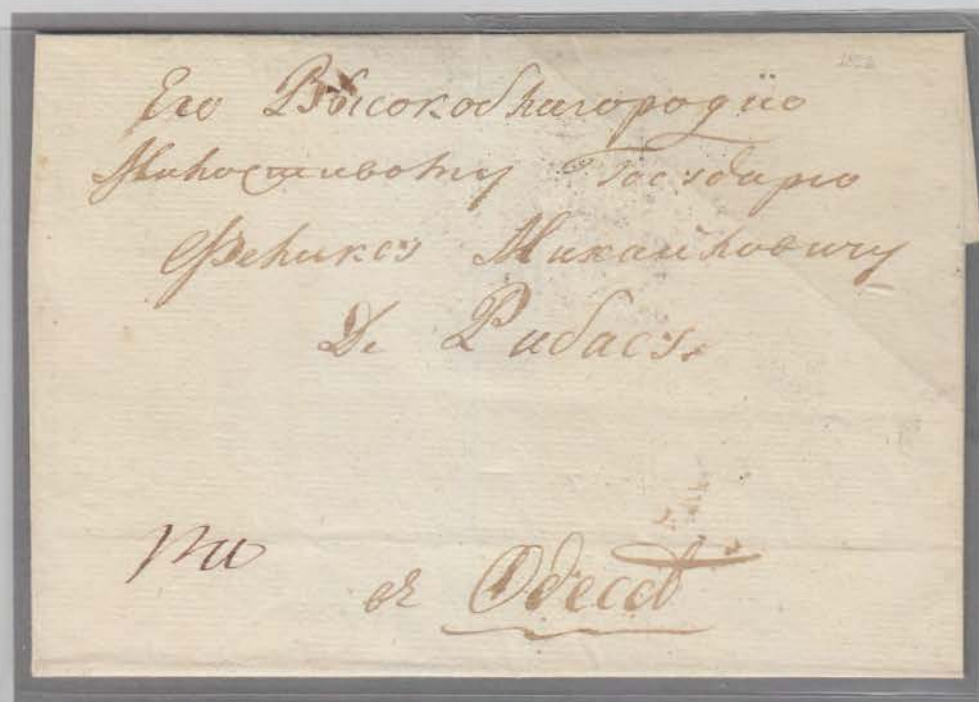 Его Высокоблагородїю
Милостивому Государю
Феликсъ Михайловичу
Де Рибасъ.
въ Одессѣ